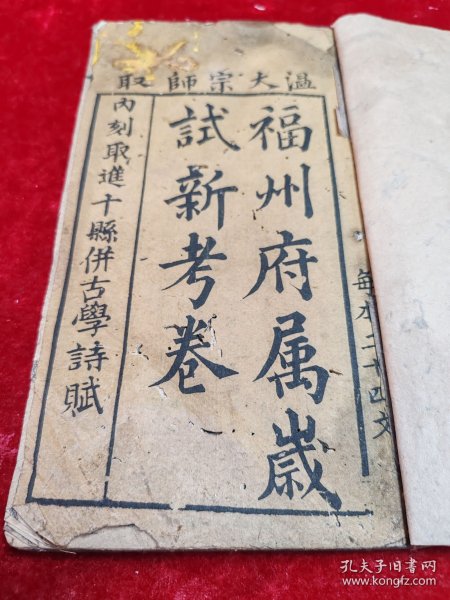 温大宗師取
福州府属歲
試新考卷
內刻取進十縣併古學詩賦
每本二十四文
孔夫子旧书网
www.kongfz.com